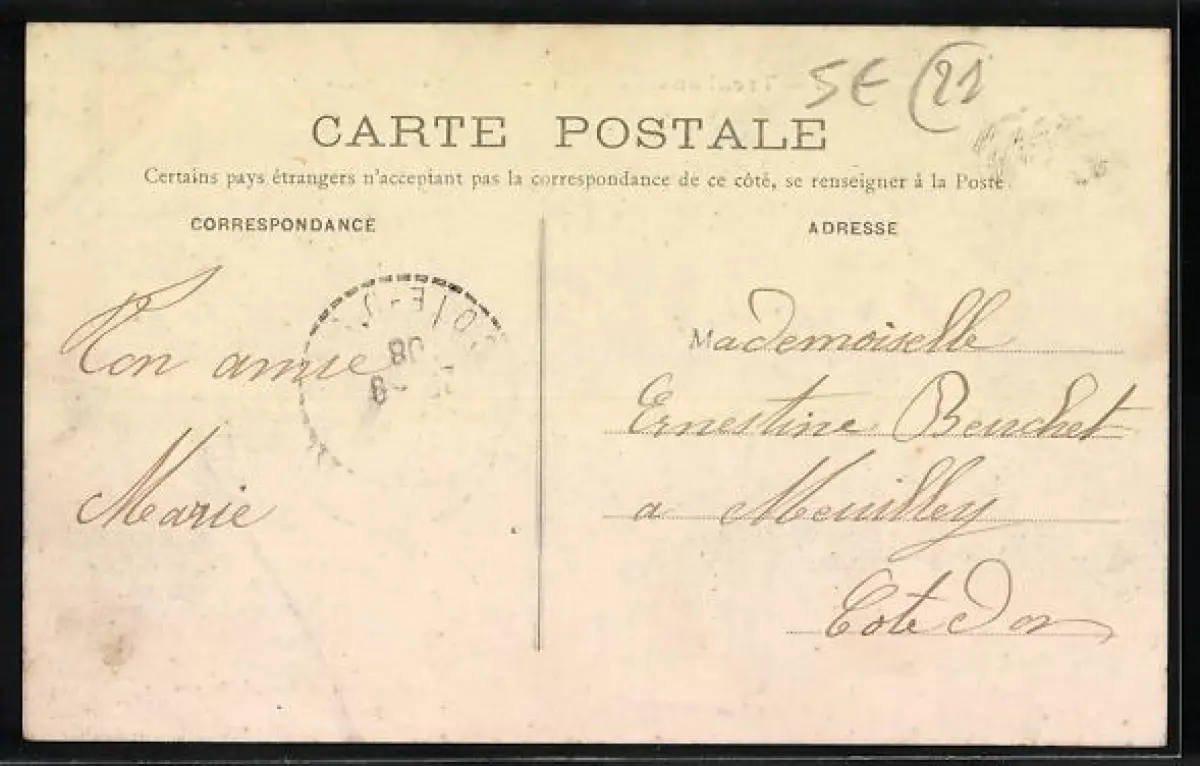 5E (21)
CARTE POSTALE
Certains pays étrangers n'acceptant pas la correspondance de ce côté, se renseigner à la Poste
CORRESPONDANCE
ADRESSE
Ton amie
Marie
08
Mademoiselle
Ernestine Beuchet
a Meuilley
Cote Dor